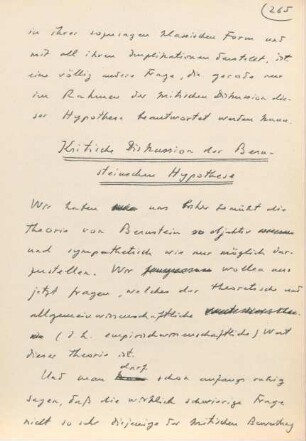 (265
in ihrer sogenannten klassischen Form und
mit all ihren Implikationen darstellt, ist
eine völlig andere Frage, die gerade nur
im Rahmen der kritischen Diskussion die-
ser Hypothese beantwortet werden kann.
Kritische Diskussion der Bern-
steinschen Hypothese
Wir haben uns bisher bemüht die
Theorie von Bernstein so objektiv
und sympathetisch wie nur möglich dar-
zustellen. Wir wollen uns
jetzt fragen, welches der theoretische und
allgemein wissenschaftliche
(d. h. empirischwissenschaftliche) Wert
dieser Theorie ist.
Und man darf schon anfangs ruhig
sagen, daß die wirklich schwierige Frage
nicht so sehr diejenige der kritischen Bewertung